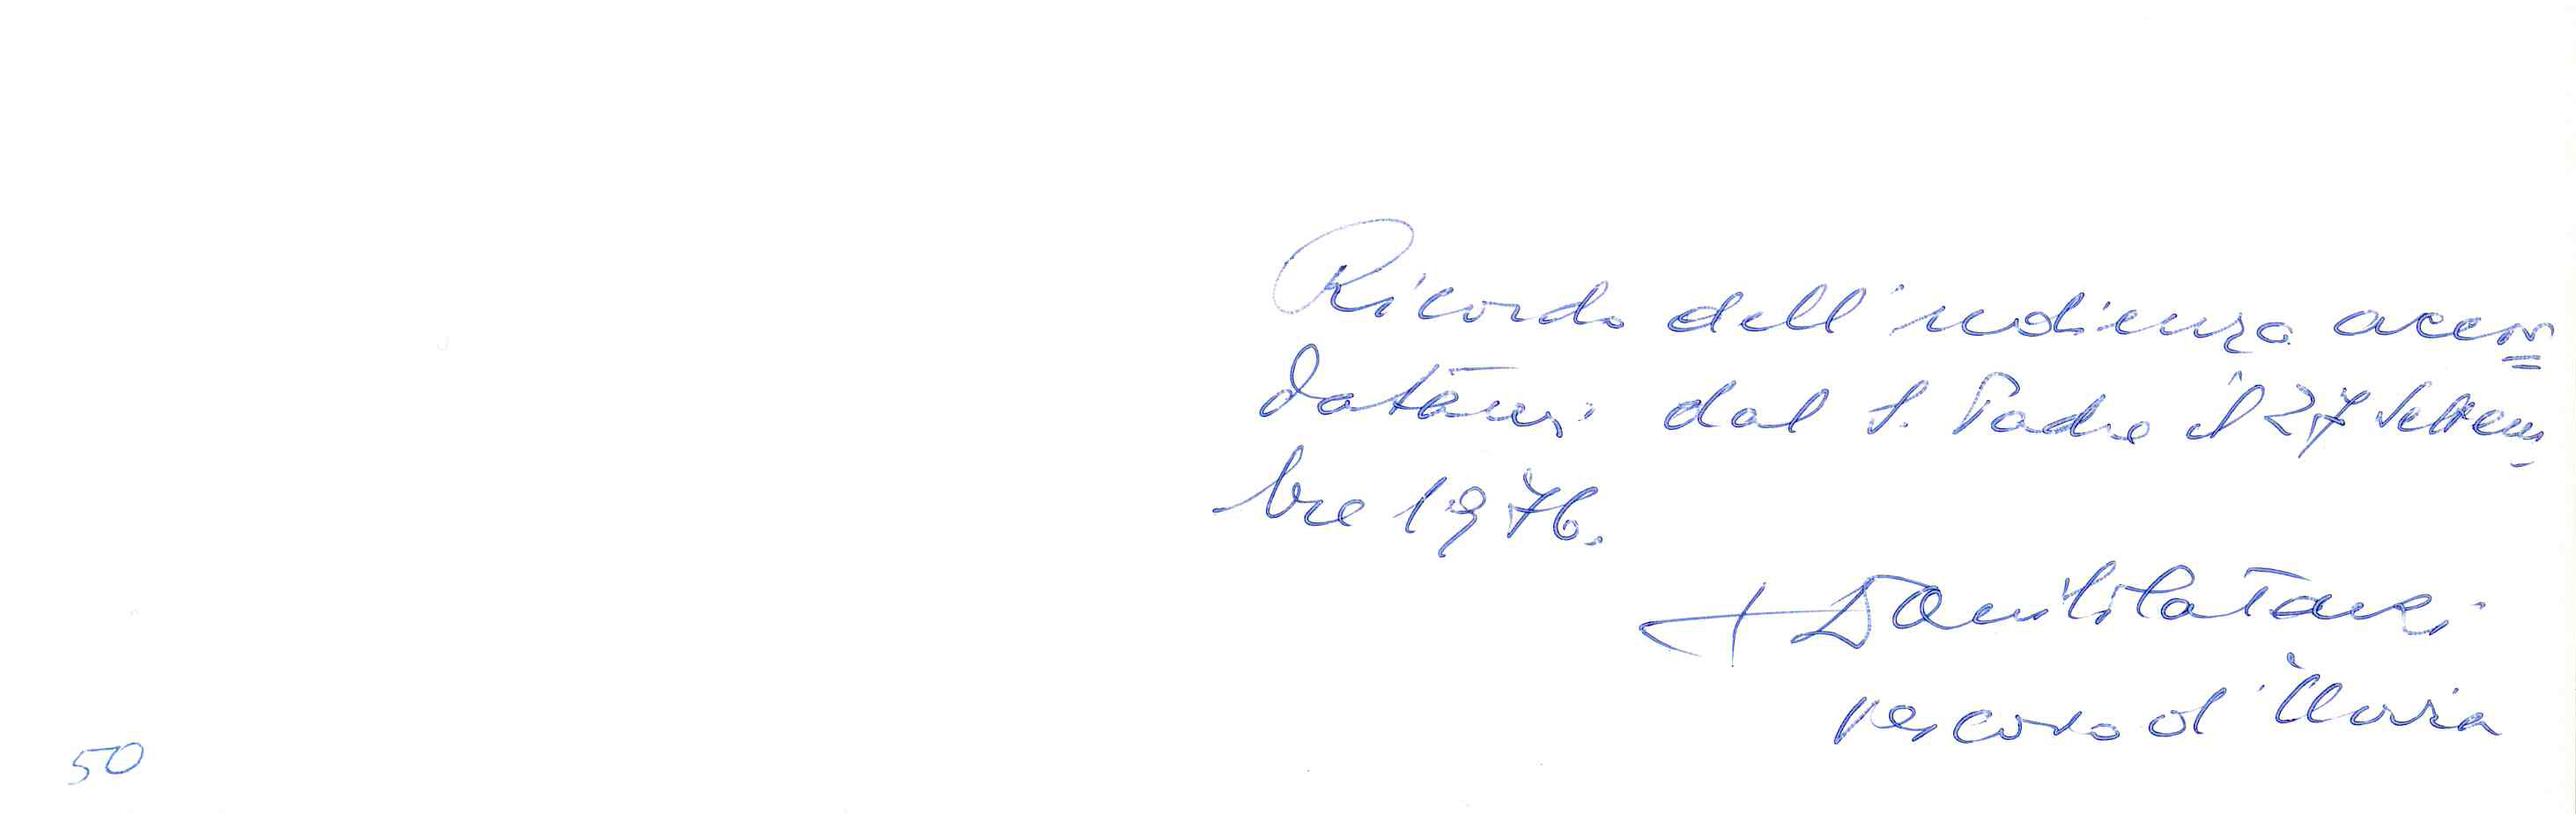 Ricordo dell'udienza accor=
datami dal S. Padre il 27 settem-
bre 1976.
+ Danilo Catarzi
vescovo d'Uvira
50